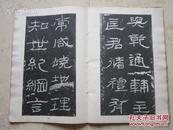 與乾通輔主
匡君循禮有
常咸曉地理
知世紀綱言